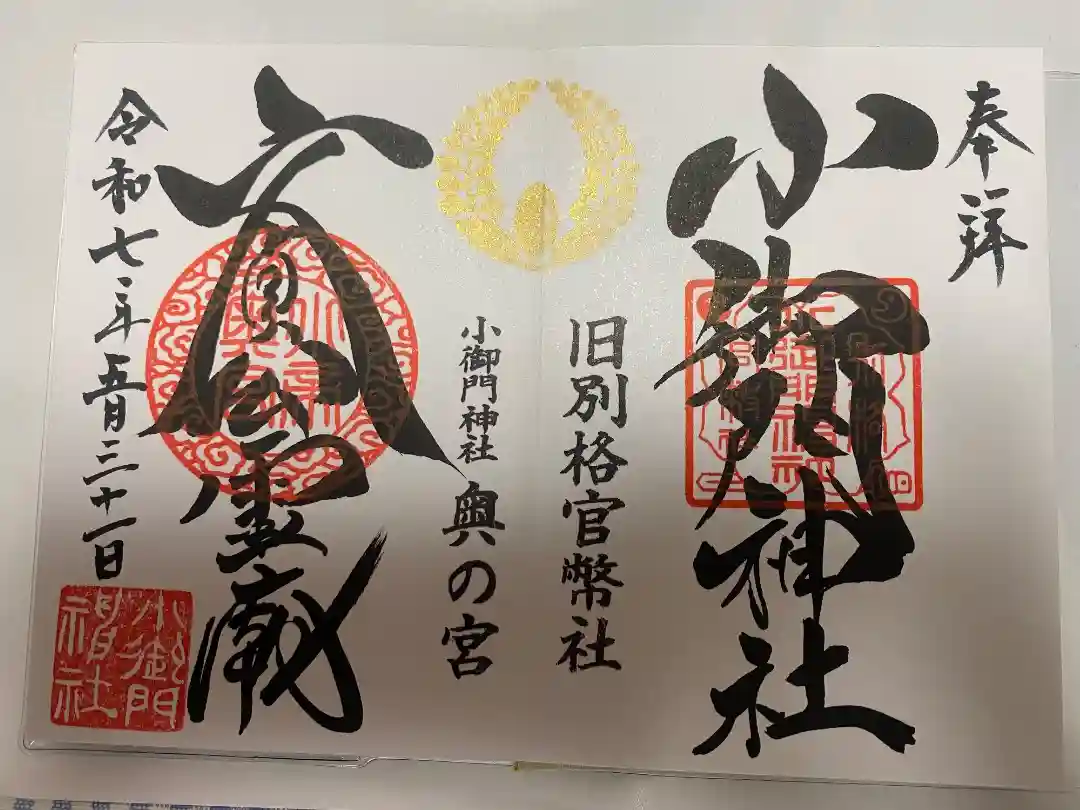 奉拝
小御門神社
旧別格官幣社
小御門神社 奥の宮
文貞公霊
令和七年五月三十一日
小御門
神社